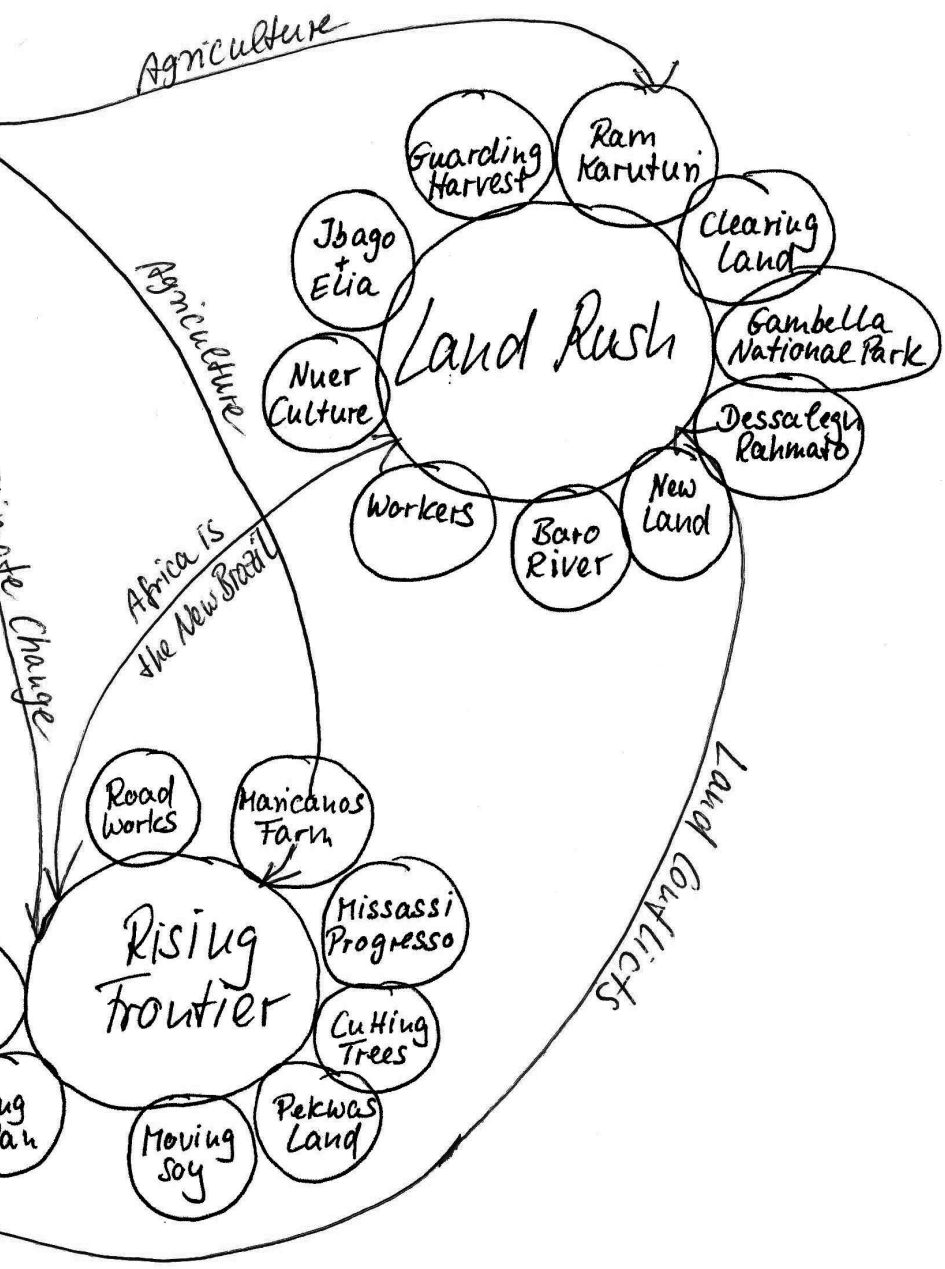 Agriculture
Guarding
Harvest
Ram
Karuturi
Clearing
Land
Gambella
National Park
Dessalegn
Rahmato
New
Land
Baro
River
Workers
Nuer
Culture
Ibago
+
Elia
Land Rush
Agriculture
Africa is
the New Brazil
Change
Land Conflicts
Road
Works
Maricanos
Farm
Missassi
Progresso
Cutting
Trees
Pekwas
Land
Moving
Soy
Rising
Frontier